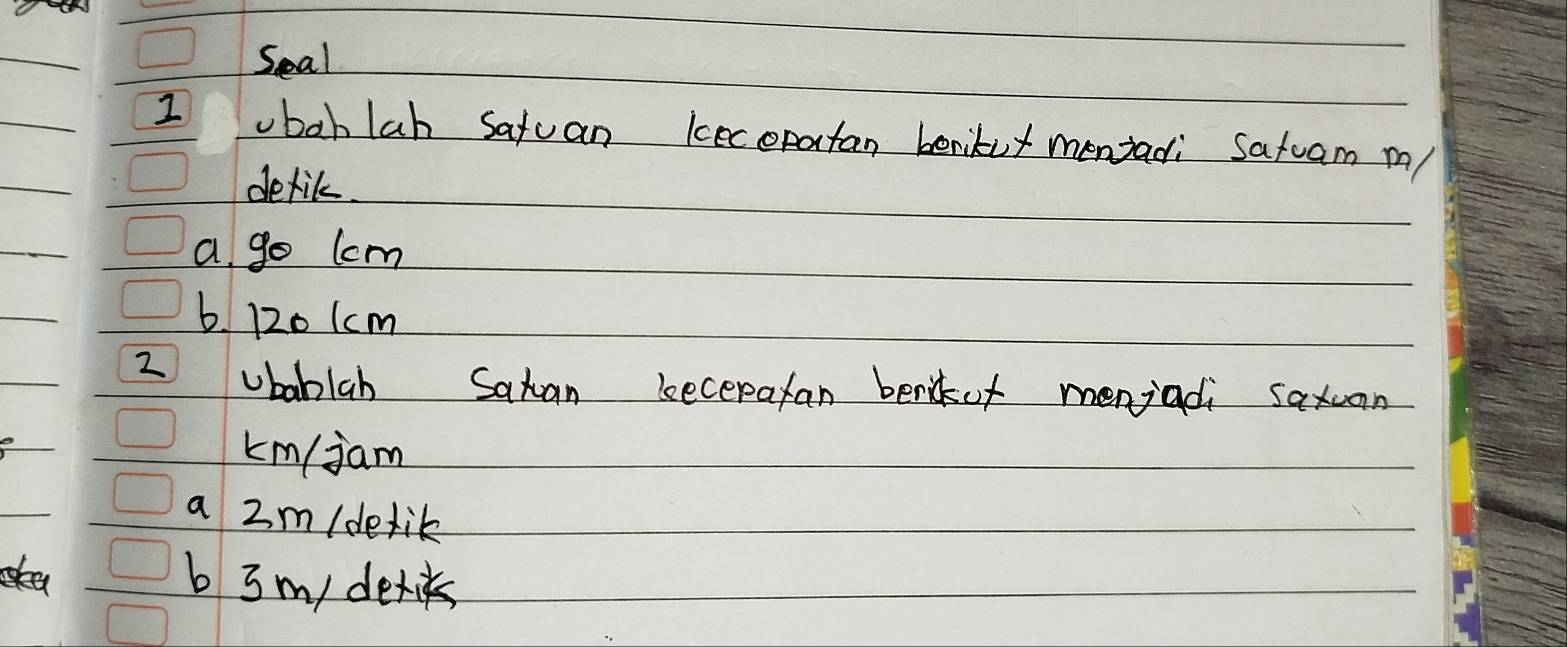 Soal
1 Ubahlah satuan kecepatan berikut menjadi satuam m/
detik.
a. 90 km
b. 120 km
2 Ubahlah Satuan kecepatan berikut menjadi satuan
km/jam
a 2m/detik
b 3m/detik